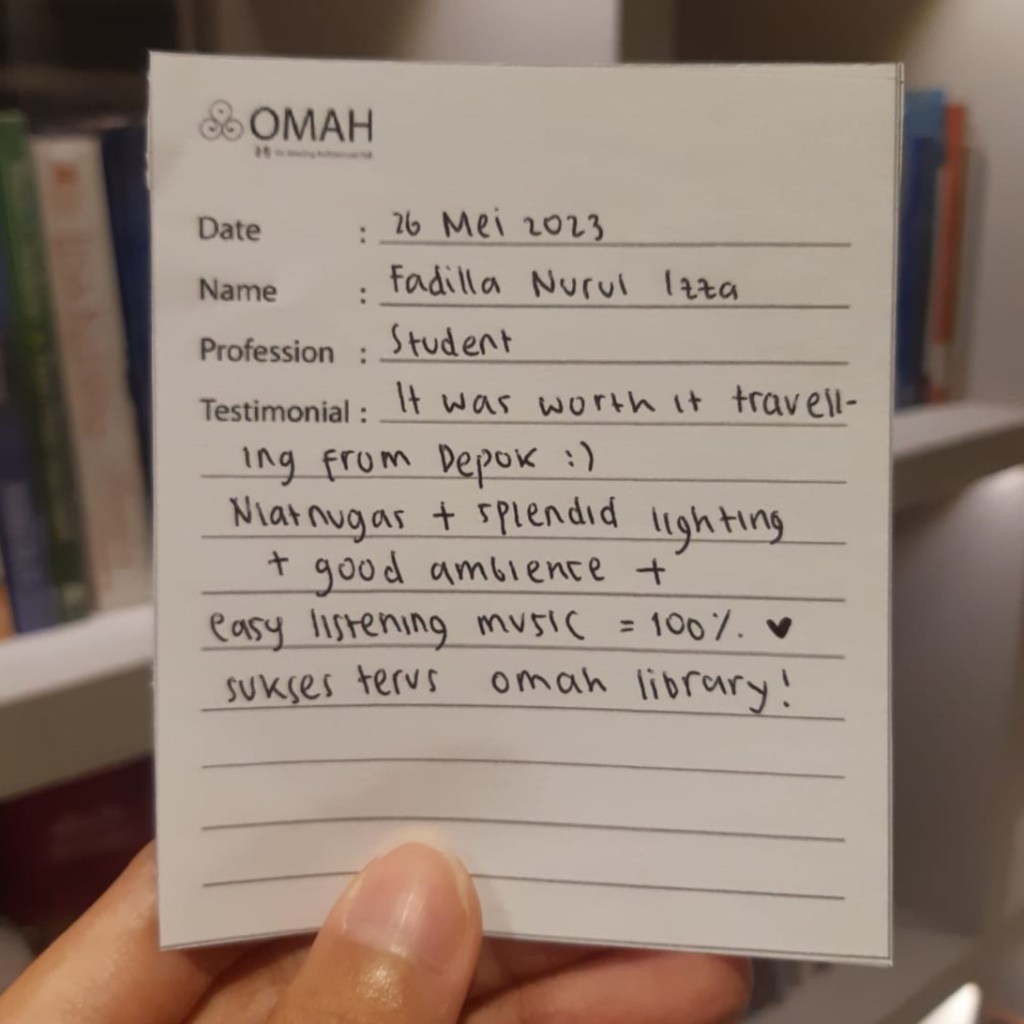 OMAH
Date : 26 Mei 2023
Name : Fadilla Nurul Izza
Profession : Student
Testimonial : It was worth it travell-
ing from Depok :)
Niatnugas + splendid lighting
+ good ambience +
easy listening music = 100%. ♥
sukses terus omah library!